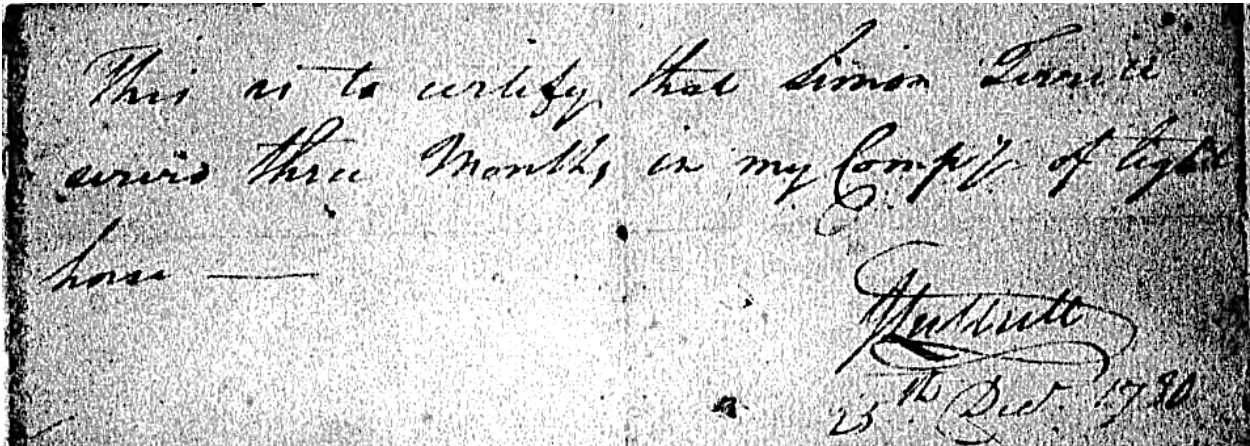 This is to certify that Simon
servd three Months in my Compy. of light
horse —
25th Decr. 1780